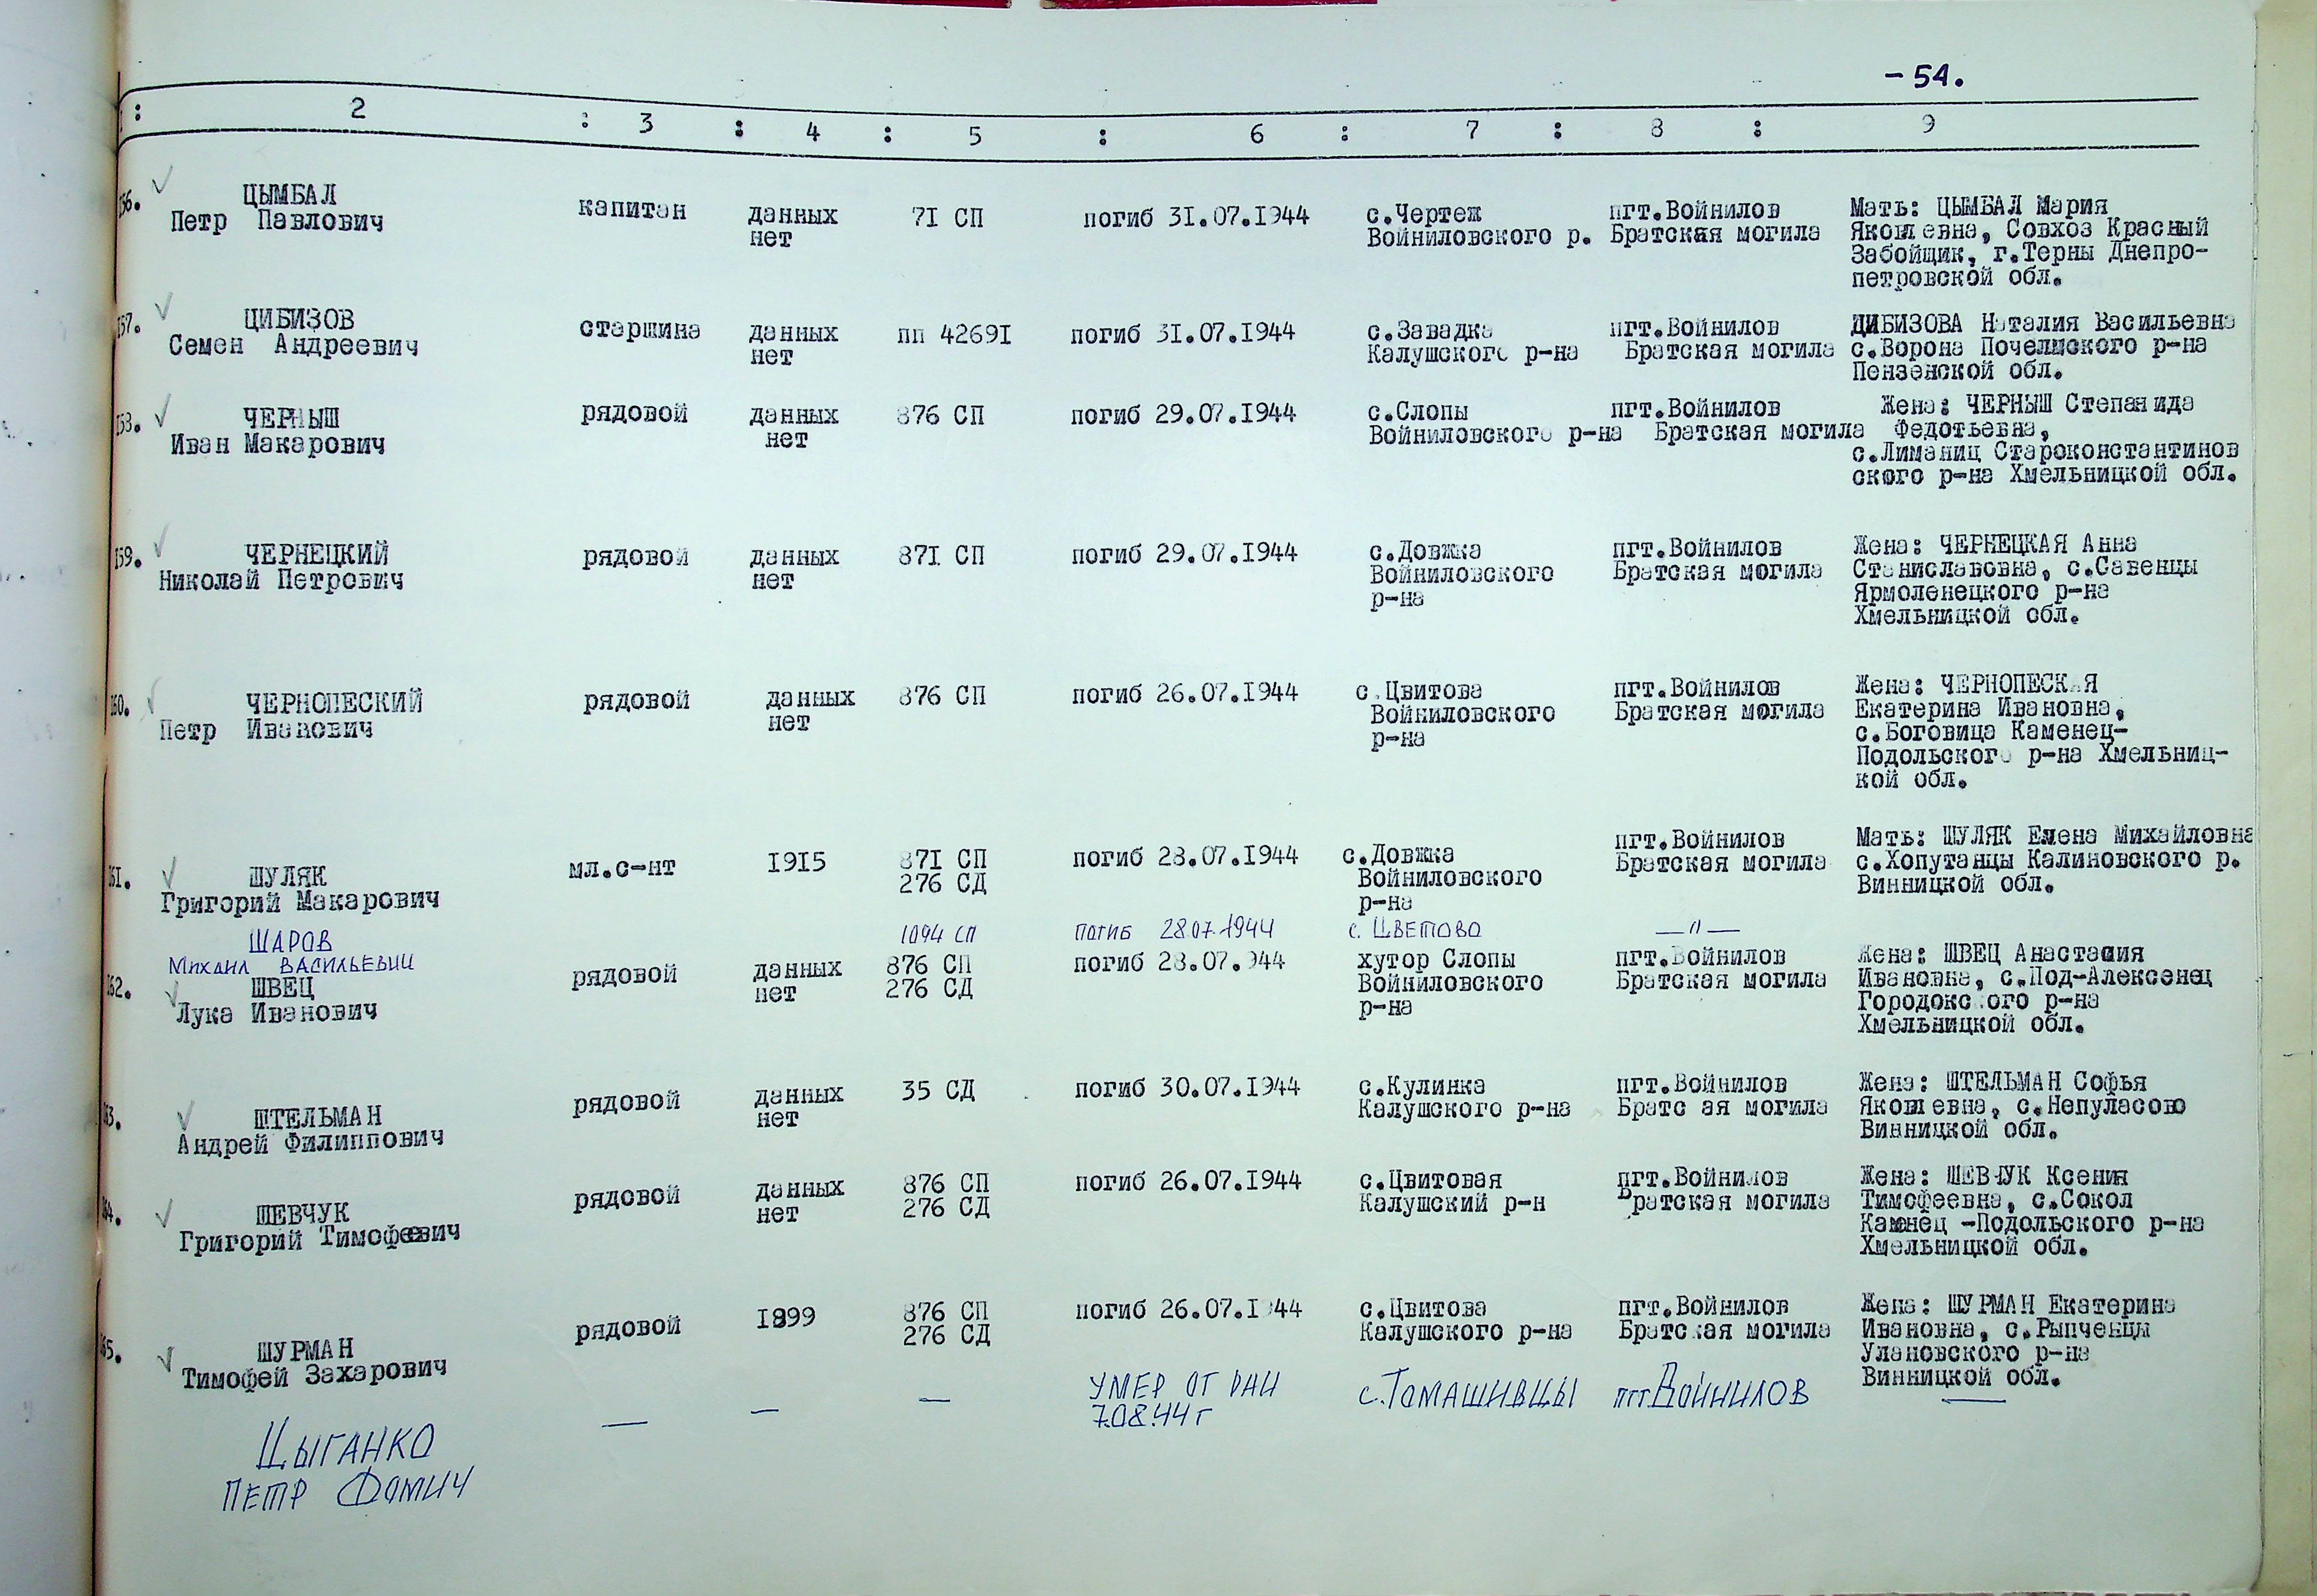 -54.
: 2 : 3 : 4 : 5 : 6 : 7 : 8 : 9
156. ЦЫМБАЛ
Петр Павлович
капитан
данных
нет
71 СП
погиб 31.07.1944
с.Чертеж
Войниловского р.
пгт.Войнилов
Братская могила
Мать: ЦЫМБАЛ Мария
Яковлевна, Совхоз Красный
Забойщик, г.Терны Днепро-
петровской обл.
157. ЦИБИЗОВ
Семен Андреевич
старшина
данных
нет
пп 42691
погиб 31.07.1944
с.Завадка
Калушского р-на
пгт.Войнилов
Братская могила
ЦИБИЗОВА Наталия Васильевна
с.Ворона Почелмского р-на
Пензенской обл.
158. ЧЕРНЫШ
Иван Макарович
рядовой
данных
нет
876 СП
погиб 29.07.1944
с.Слопы
Войниловского р-на
пгт.Войнилов
Братская могила
Жена: ЧЕРНЫШ Степанида
Федотьевна,
с.Лиманиц Староконстантинов
ского р-на Хмельницкой обл.
159. ЧЕРНЕЦКИЙ
Николай Петрович
рядовой
данных
нет
871 СП
погиб 29.07.1944
с.Довжка
Войниловского
р-на
пгт.Войнилов
Братская могила
Жена: ЧЕРНЕЦКАЯ Анна
Станиславовна, с.Савенцы
Ярмоленецкого р-на
Хмельницкой обл.
160. ЧЕРНОПЕСКИЙ
Петр Иванович
рядовой
данных
нет
876 СП
погиб 26.07.1944
с.Цвитова
Войниловского
р-на
пгт.Войнилов
Братская могила
Жена: ЧЕРНОПЕСКАЯ
Екатерина Ивановна,
с.Боговица Каменец-
Подольского р-на Хмельниц-
кой обл.
161. ШУЛЯК
Григорий Макарович
мл.с-нт
1915
871 СП
276 СД
погиб 28.07.1944
с.Довжка
Войниловского
р-на
пгт.Войнилов
Братская могила
Мать: ШУЛЯК Елена Михайловна
с.Хопутанцы Калиновского р.
Винницкой обл.
ШАРОВ
Михаил ВАСИЛЬЕВИЧ
1094 СП
ПОГИБ 28.07.1944
с. ЦВЕТОВО
—"—
162. ШВЕЦ
Лука Иванович
рядовой
данных
нет
876 СП
276 СД
погиб 28.07.1944
хутор Слопы
Войниловского
р-на
пгт.Войнилов
Братская могила
Жена: ШВЕЦ Анастасия
Ивановна, с.Под-Алексенец
Городокского р-на
Хмельницкой обл.
163. ШТЕЛЬМАН
Андрей Филиппович
рядовой
данных
нет
35 СД
погиб 30.07.1944
с.Кулинка
Калушского р-на
пгт.Войнилов
Братс ая могила
Жена: ШТЕЛЬМАН Софья
Яковлевна, с.Непуласово
Винницкой обл.
164. ШЕВЧУК
Григорий Тимофеевич
рядовой
данных
нет
876 СП
276 СД
погиб 26.07.1944
с.Цвитовая
Калушский р-н
пгт.Войнилов
Братская могила
Жена: ШЕВЧУК Ксения
Тимофеевна, с.Сокол
Камнец -Подольского р-на
Хмельницкой обл.
165. ШУРМАН
Тимофей Захарович
рядовой
1899
876 СП
276 СД
погиб 26.07.1944
с.Цвитова
Калушского р-на
пгт.Войнилов
Братская могила
Жена: ШУРМАН Екатерина
Ивановна, с.Рыпченцы
Улановского р-на
Винницкой обл.
ЦЫГАНКО
ПЕТР ФОМИЧ
—
—
—
УМЕР ОТ РАН
7.08.44 г
с.ТОМАШИВЦЫ
пгт ВОЙНИЛОВ
—